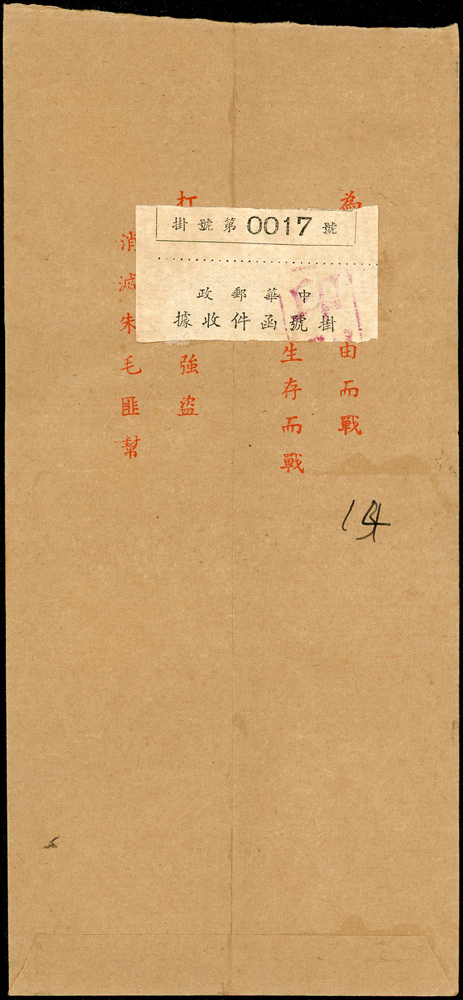 掛號第0017號
中華郵政
掛號函件收據
為
由而戰
生存而戰
打
強盜
消滅朱毛匪幫
14